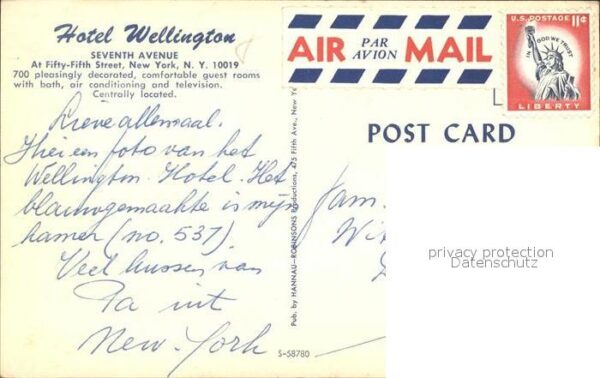 Hotel Wellington
SEVENTH AVENUE
At Fifty-Fifth Street, New York, N. Y. 10019
700 pleasingly decorated, comfortable guest rooms
with bath, air conditioning and television.
Centrally located.
Lieve allemaal.
Hier een foto van het
Wellington Hotel. Het
blauwgemaakte is mijn
kamer (no. 537).
Veel kussen van
Pa uit
New-York
S-58780
Pub. by HANNAU-ROBINSONS Productions, 475 Fifth Ave., New Yo
AIR PAR AVION MAIL
U.S. POSTAGE 11¢
IN GOD WE TRUST
LIBERTY
POST CARD
Fam.
privacy protection
Datenschutz